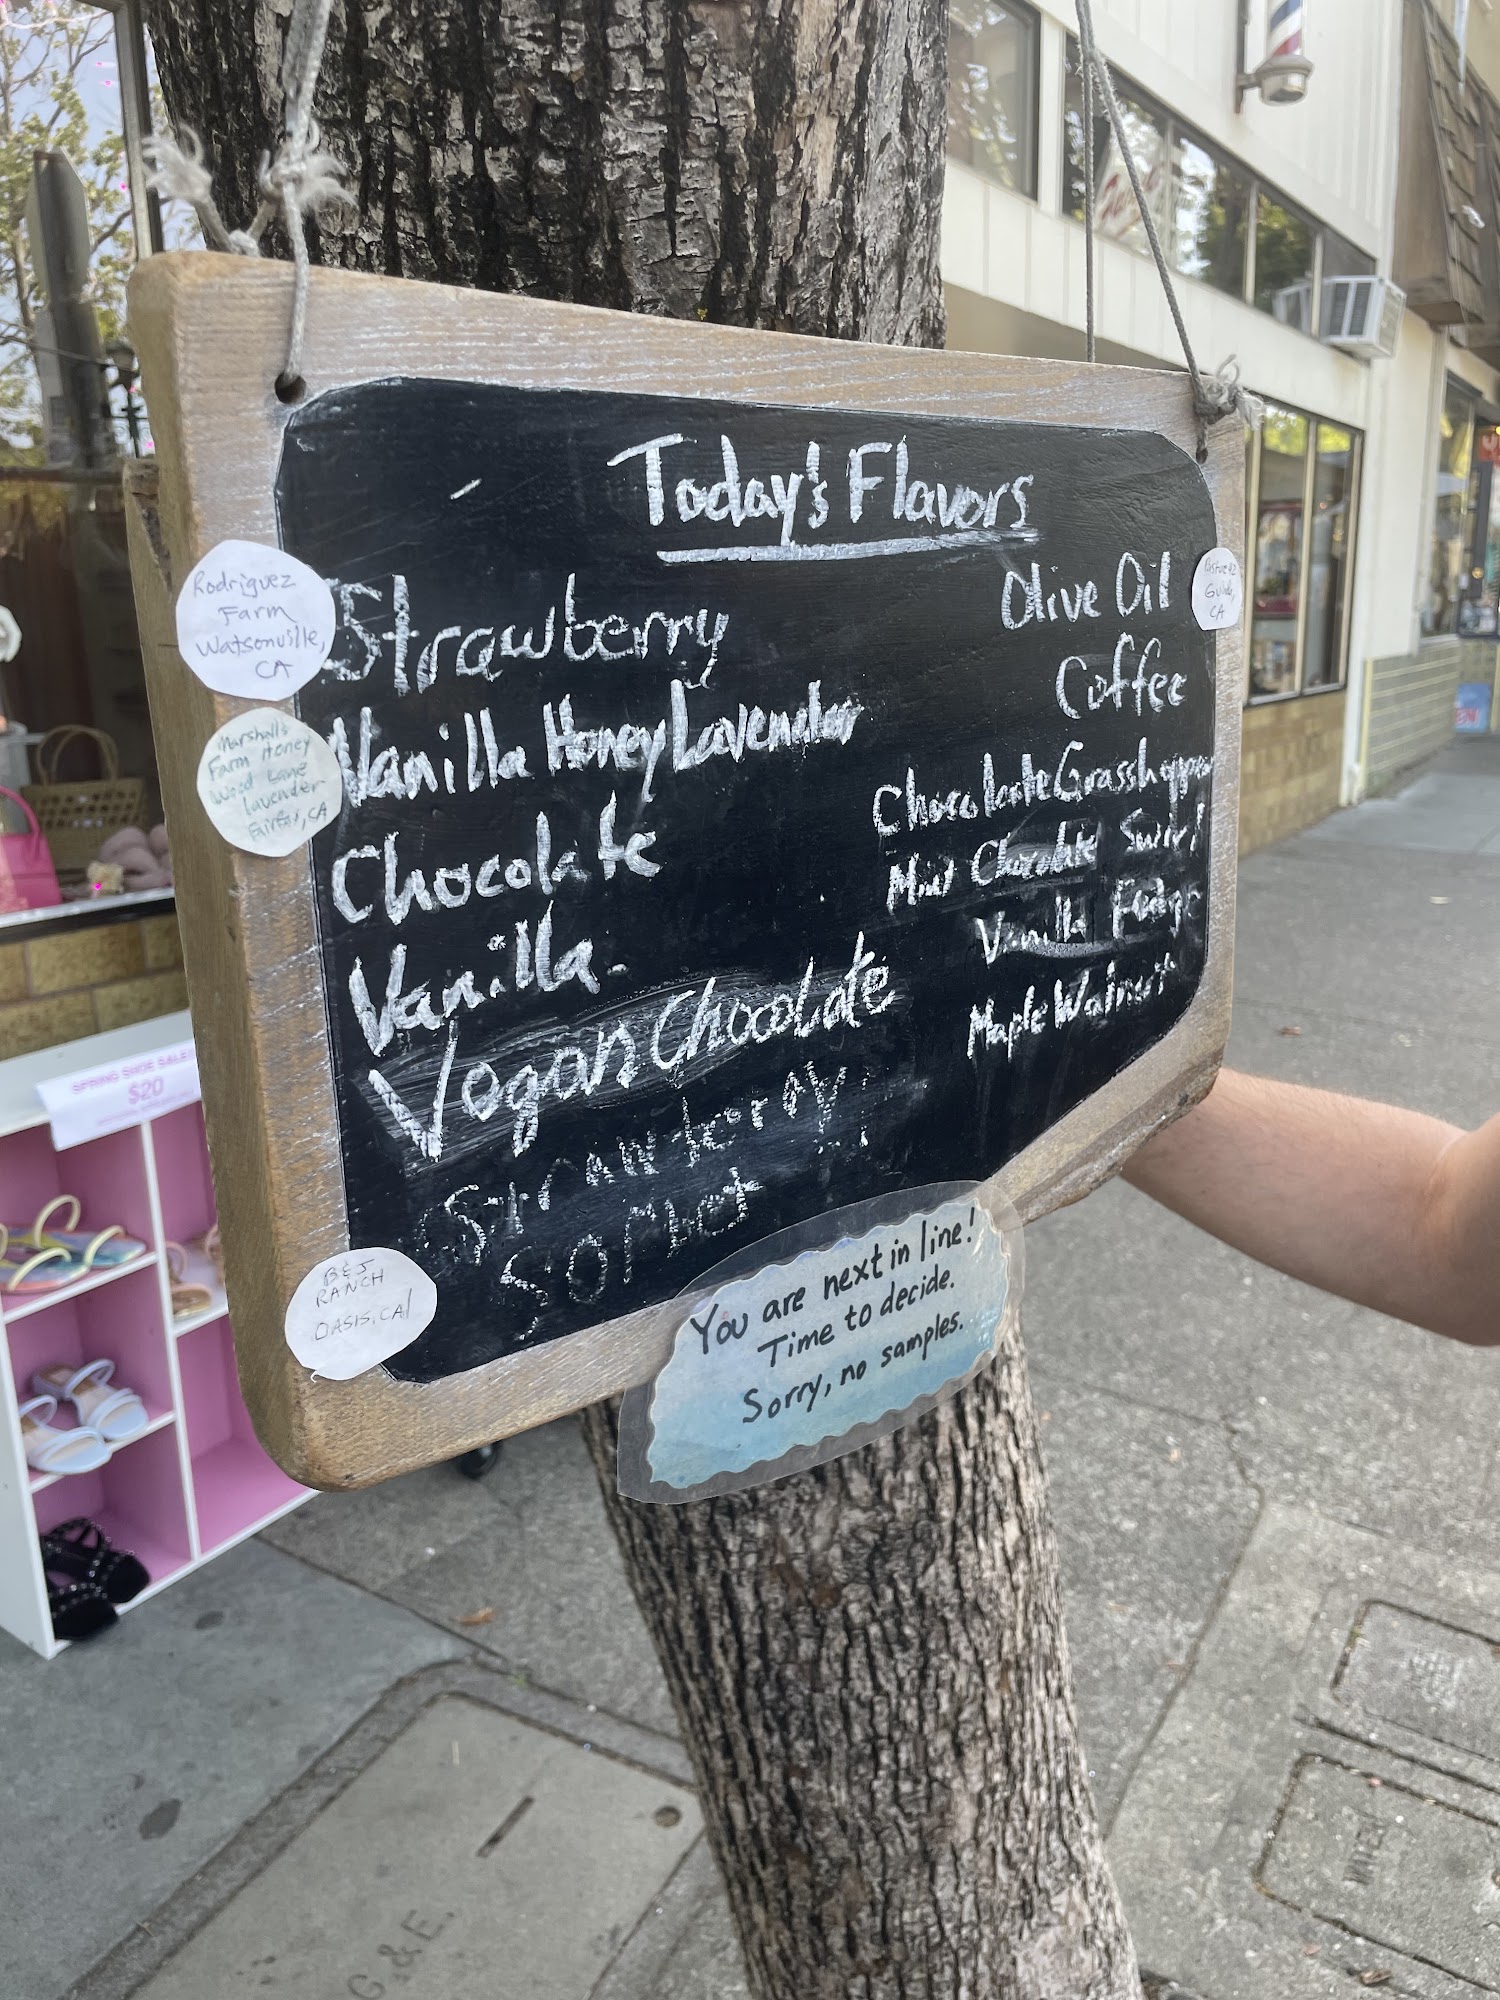 Today's Flavors
Strawberry
Vanilla Honey Lavender
Chocolate
Vanilla
Vegan Chocolate
Strawberry
Sorbet
Olive Oil
Coffee
Chocolate Grasshopper
Mint Chocolate Swirl
Vanilla Fudge
Maple Walnut
Rodriguez
Farm
Watsonville,
CA
Marshall's
Farm Honey
Wood Lane
lavender
Fairfax, CA
B&J
RANCH
OASIS, CA
CA
You are next in line!
Time to decide.
Sorry, no samples.
SPRING SHOE SALE!
$20
G&E
WATER